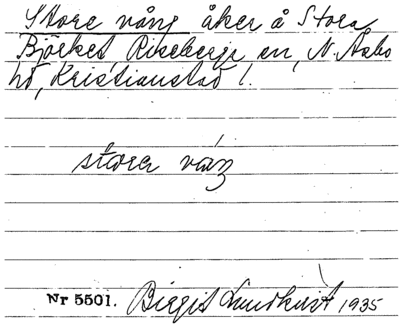 Store vång åker å Stora
Björket, Riseberga sn, N. Åsbo
hd, Kristianstad l.
stårer váŋ
Nr 5501. Birgit Lundkvist 1935